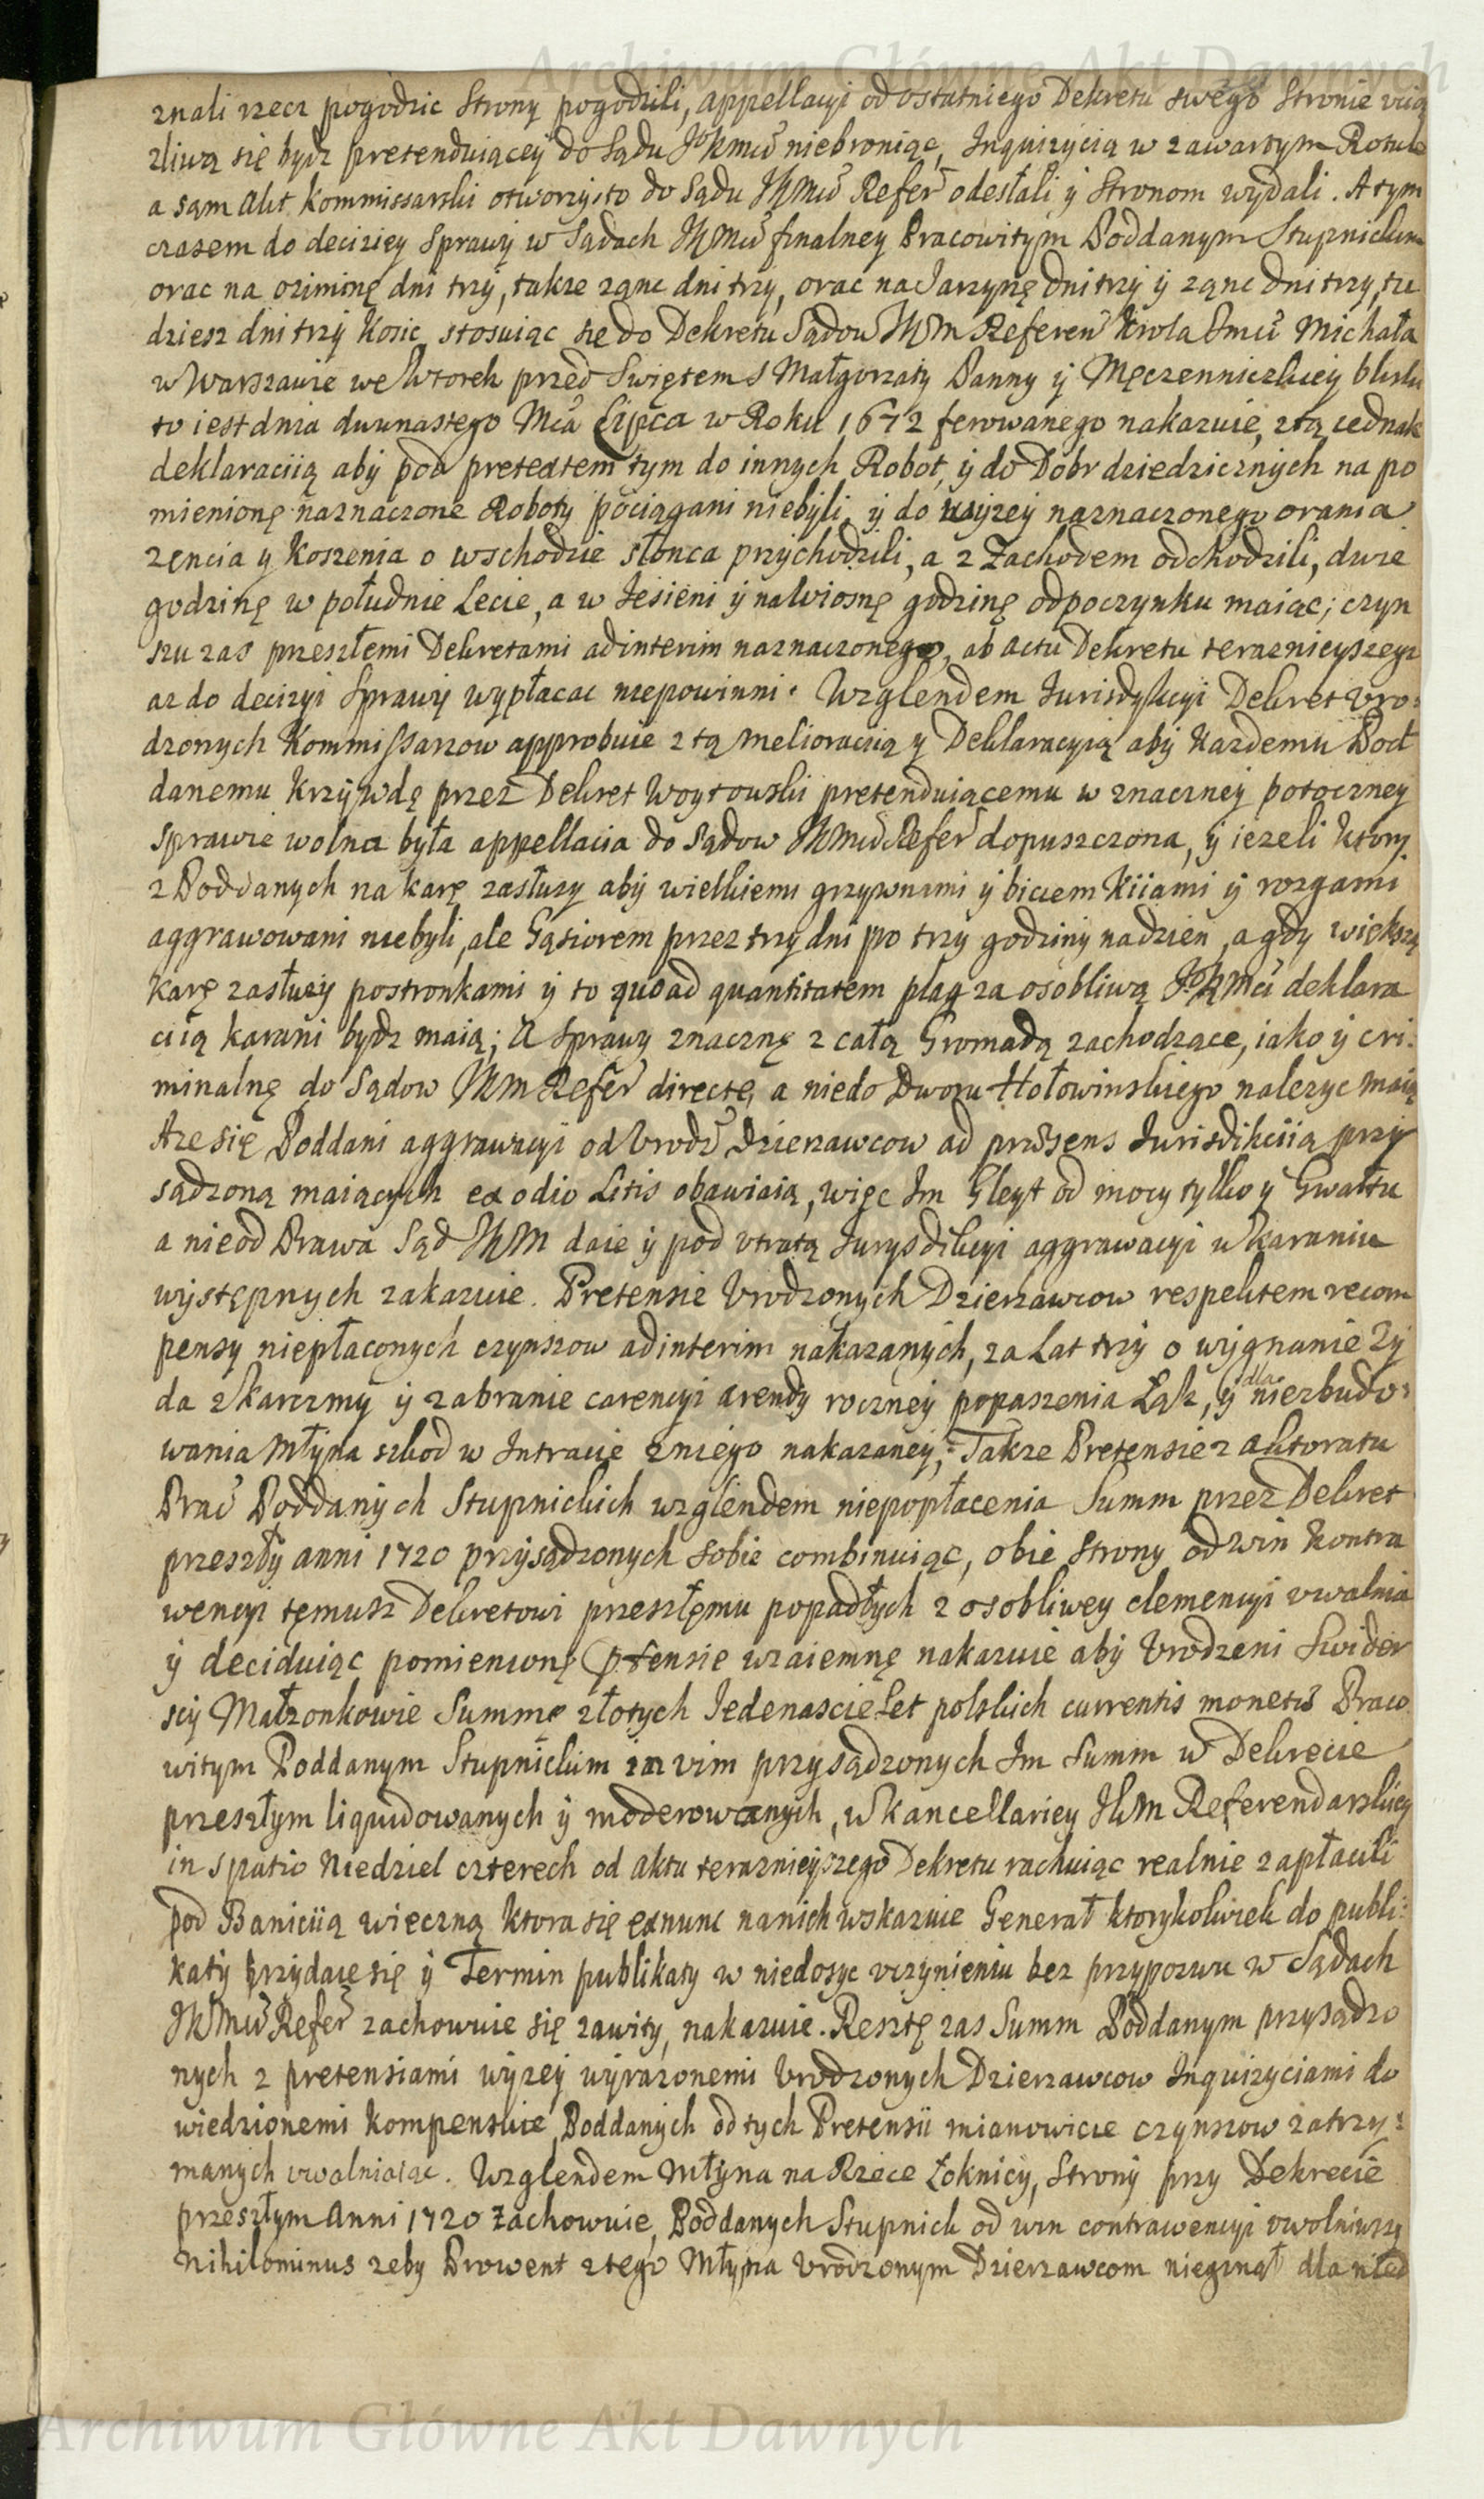 Archiwum Główne Akt Dawnych
znali rzecz pogodzic Strony pogodzili, appellacyi od ostatniego Dekretu swego Stronie vcią
zliwą się bydz pretenduiącey do Sądu JoKmci niebroniąc, Inquizycią w zawartym Rotule
a sąm Akt Kommissarski otworzysto do Sądu JKMci Refer odesłali ÿ Stronom wydali. A tym
czasem do deciziey Sprawy w Sądach JKMci finalney Pracowitym Poddanym Stupnickim
orac na oziminę dni trzy, takze ząnc dni trzy, orac na Jarzynę dni trzy ÿ ząnc dni trzy, tu
dziesz dni trzy Kosic, stosuiąc się do Dekretu Sądow JKM Referen Krola Jmci Michała
w Warszawie we Wtorek przed Swiętem S Małgorzaty Panny ÿ Męczenniczkiey blisko
to iest dnia dwunastego Mca Lipca w Roku 1672 ferowanego nakazuie, z tą iednak
deklaraciią aby pod pretextem tym do innych Robot, ÿ do Dobr dziedzicznych na po
mienionę naznaczone Roboty pociągani niebyli, ÿ do wyzey naznaczonego orania
zęncia y Koszenia o wschodzie słonca przychodzili, a z Zachodem odchodzili, dwie
godzinę w południe Lecie, a w Jesieni ÿ na Wiosnę godzinę odpoczynku maiąc; czyn
szu zas przeszłemi Dekretami adinterim naznaczonego, ab actu Dekretu teraznieyszego
az do decizyi Sprawy wypłacac niepowinni. Wzglendem Jurisdykcyi Dekret Vro:
dzonych Kommissarzow approbuie z tą melioracią y Deklaracyią aby Kazdemu Pod
danemu Krzywdę przez Dekret Woytowski pretenduiącemu w znaczney potoczney
sprawie wolna była appellacia do Sądow JKMci Refer dopuszczona, ÿ iezeli Ktory
z Poddanych na karę zasłuzy aby wielkiemi grzywnami ÿ biciem Kiiami ÿ rozgami
aggrawowani niebyli, ale Gąsiorem przez trzy dni po trzy godziny nadzien, a gdy większą
karę zasłuzy postronkami ÿ to quoad quantitatem plag za osobliwą JoKMci deklara
ciią karani bydz maią; A Sprawy znacznę z całą Gromadą zachodzące, iako ÿ cri:
minalnę do Sądow JKM Refer directe, a niedo Dworu Hołowinskiego nalezyc maią
Aze się Poddani aggrawacyi od Vrodz Dzierzawcow ad præsens Jurisdikciią przy
sądzoną maiących ex odio Litis obawiaią, więc Im Gleyt od mocy tylko y Gwałtu
a nieod Prawa Sąd JKM daie ÿ pod vtratą Jurysdikcyi aggrawacyi w Karaniu
występnych zakazuie. Pretensie Vrodzonych Dzierzawcow respektem recom
pensy niepłaconych czynszow adinterim nakazanych, za Lat trzy o wygnanie Zy
da z Karczmy ÿ zabranie carencyi arendy roczney popaszenia Łąk, ÿ dla niezbudo:
wania Młyna szkod w Intracie z niego nakazaney; Takze Pretensie z Aktoratu
Prac Poddanych Stupnickich wzglendem niepopłacenia Summ przez Dekret
przeszły anni 1720 przysądzonych sobie combinuiąc, obie Strony od win Kontra
wencyi tęmusz Dekretowi przeszłęmu popadłych z osobliwey clemencyi vwalnia
ÿ deciduiąc pomienionę ptensie wzaiemnę nakazuie aby Vrodzeni Swider
scy Małzonkowie Summę złotych Jedenascie Set polskich currentis monetæ Praco
witym Poddanym Stupnickim in vim przysądzonych Im Summ w Dekrecie
przeszłym liquidowanych ÿ moderowanych, w Kancellariey JKM Referendarskiey
in spatio Niedziel czterech od aktu teraznieyszego Dekretu rachuiąc realnie zapłacili
pod Baniciią wieczną Ktora się exnunc nanich wskazuie Generał Ktorykolwiek do publi:
katy przydaie się ÿ Termin publikaty w niedosyc vczynieniu bez przypozwu w Sądach
JKMci Refer zachowuie się zawity, nakazuie. Resztę zas Summ Poddanym przysądzo
nych z pretensiami wyzey wyrazonemi Vrodzonych Dzierzawcow Inquizyciami do
wiedzionemi Kompensuie, Poddanych od tych Pretensii mianowicie czynszow zatrzy:
manych vwalniaiąc. Wzglendem Młyna na Rzece Łoknicy, Strony przy Dekrecie
przeszłym Anni 1720 Zachowuie, Poddanych Stupnick od win contrawencyi vwolniwszy
Nihilominus zeby Prowent z tego Młyna Vrodzonym Dzierzawcom nieginął dla nied
Archiwum Główne Akt Dawnych